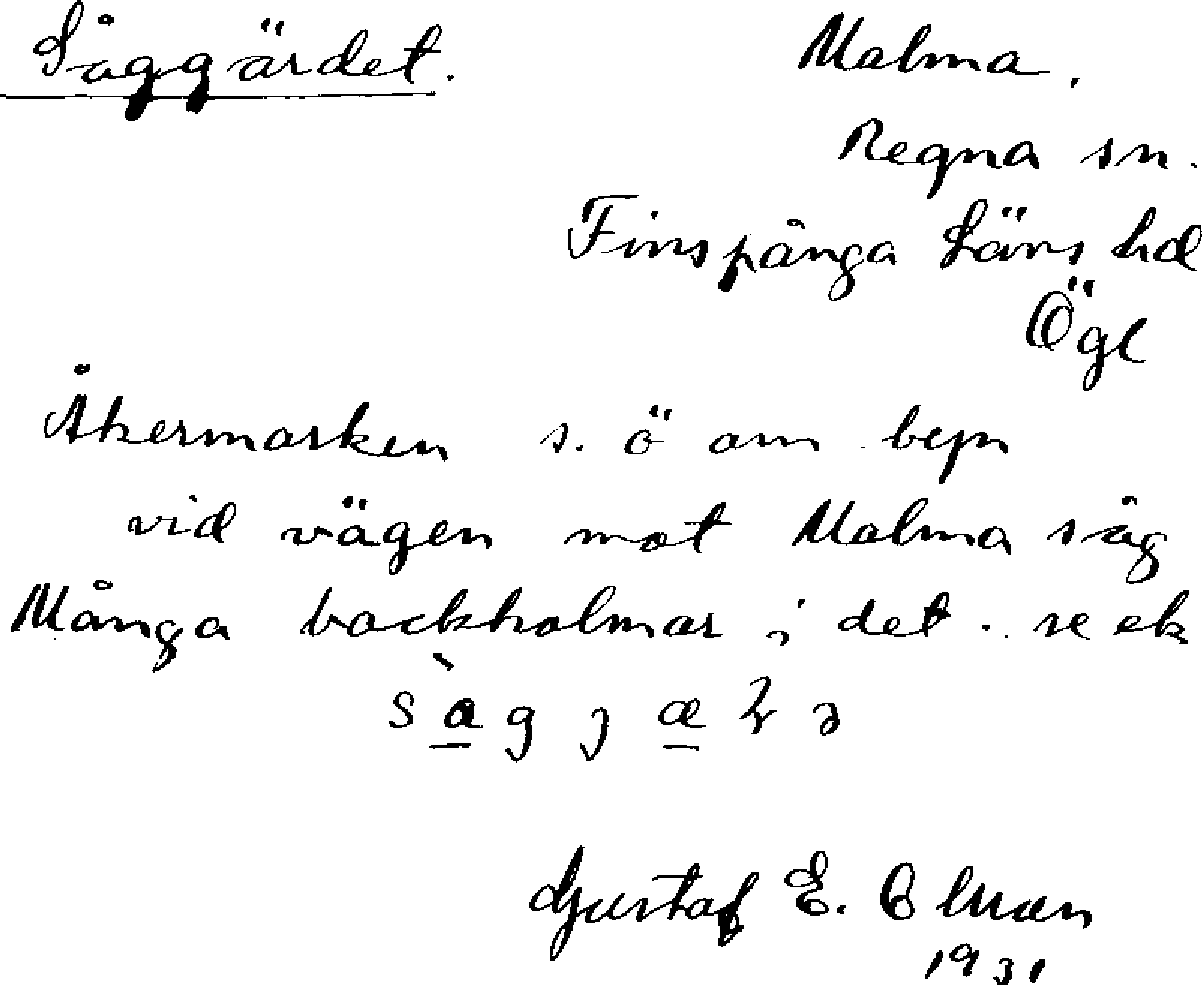 Såggärdet. Malma.
Regna sn.
Finspånga Läns hd
Ögl
Åkermarken s. ö om byn
vid vägen mot Malma såg
Många backholmar i det. se ek
Gustaf E.
1931